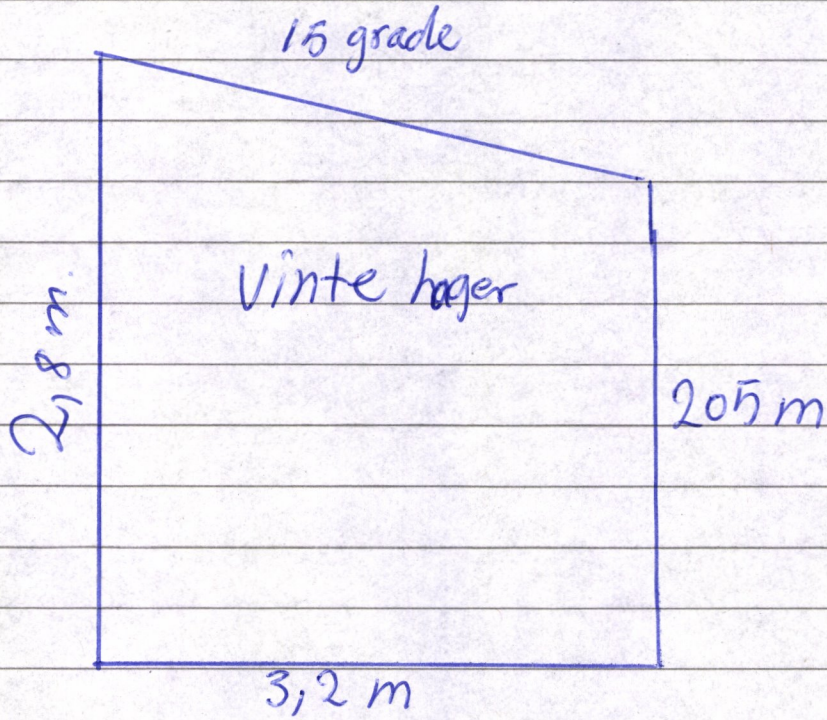 15 grade
Vinte hager
2,8 m
205 m
3,2 m